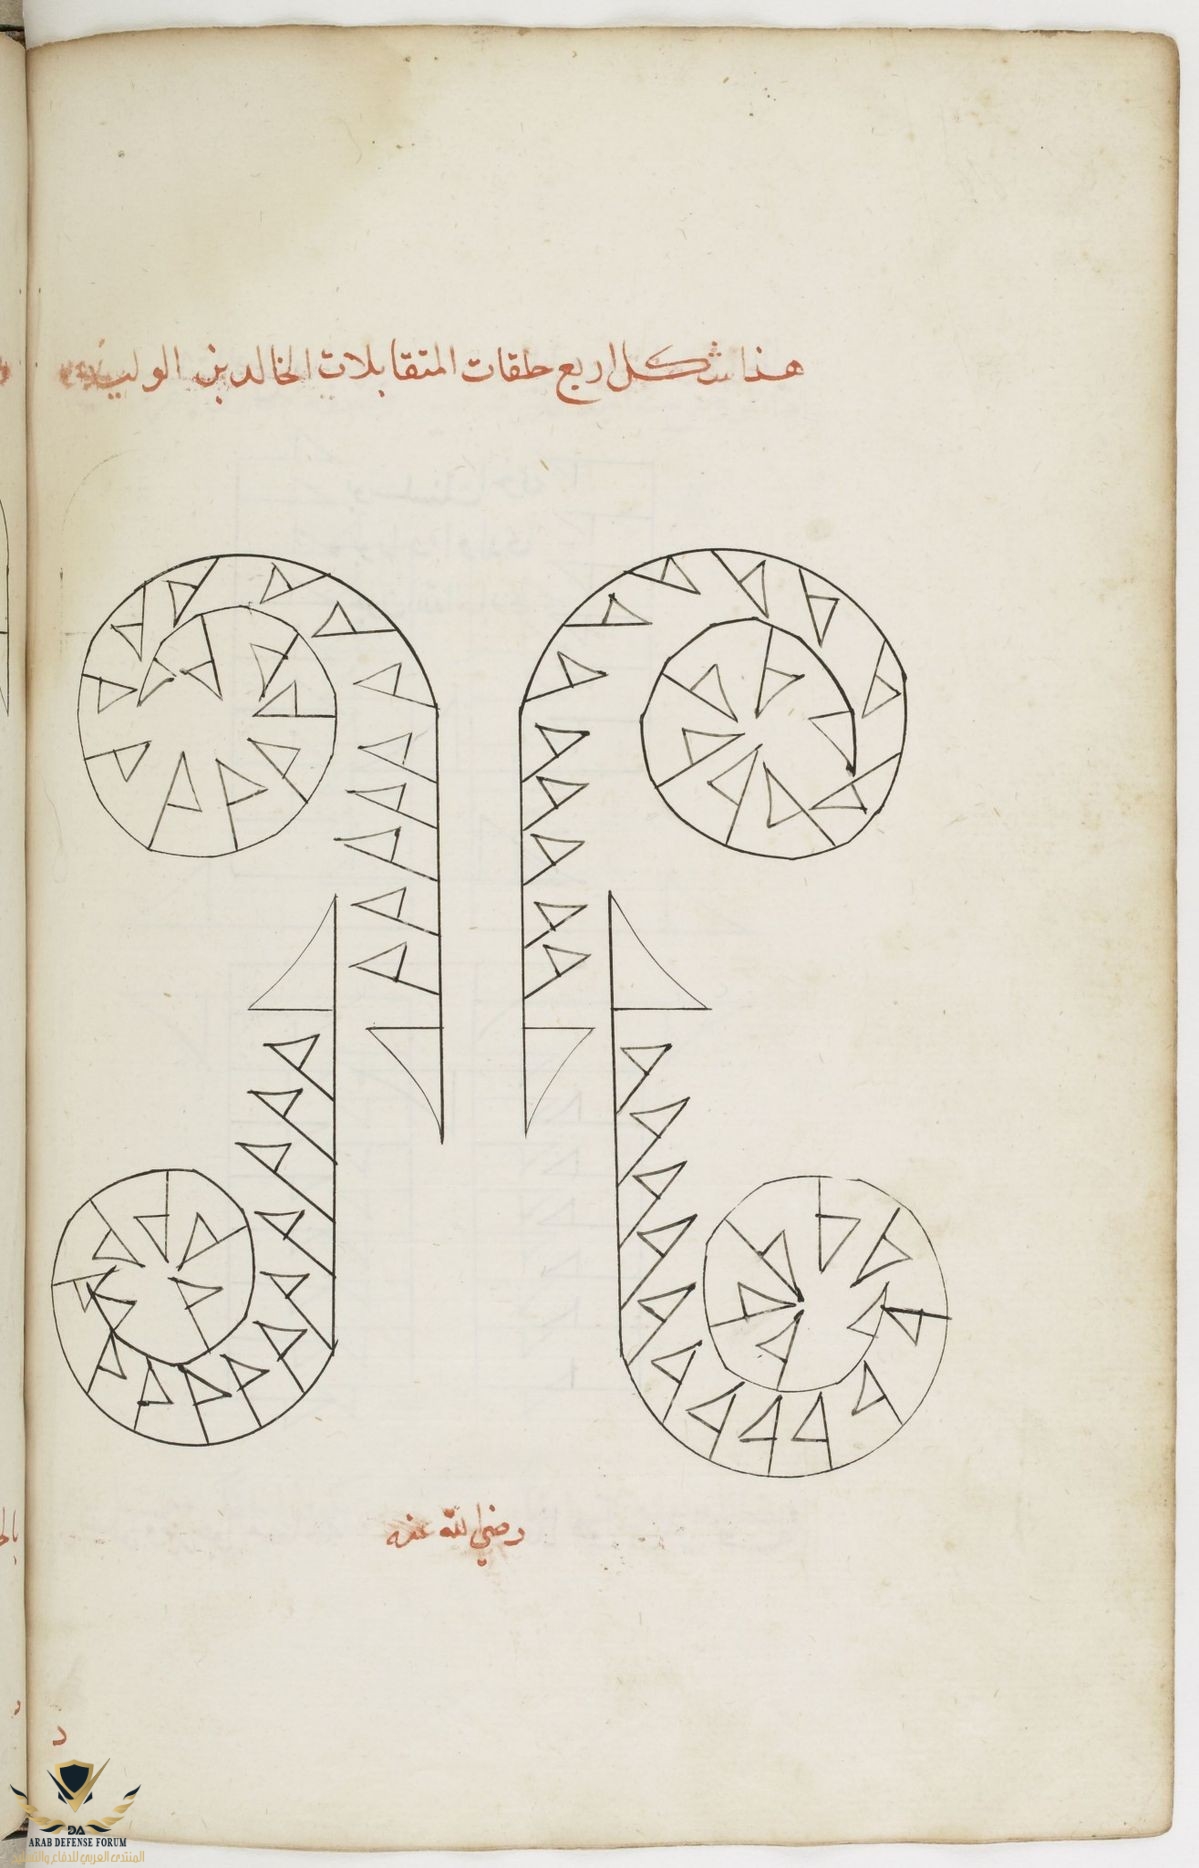 هذا شكل اربع حلقات المتقابلات لخالد بن الوليد
رضي الله عنه
د
ARAB DEFENSE FORUM
المنتدى العربي للدفاع والتسليح